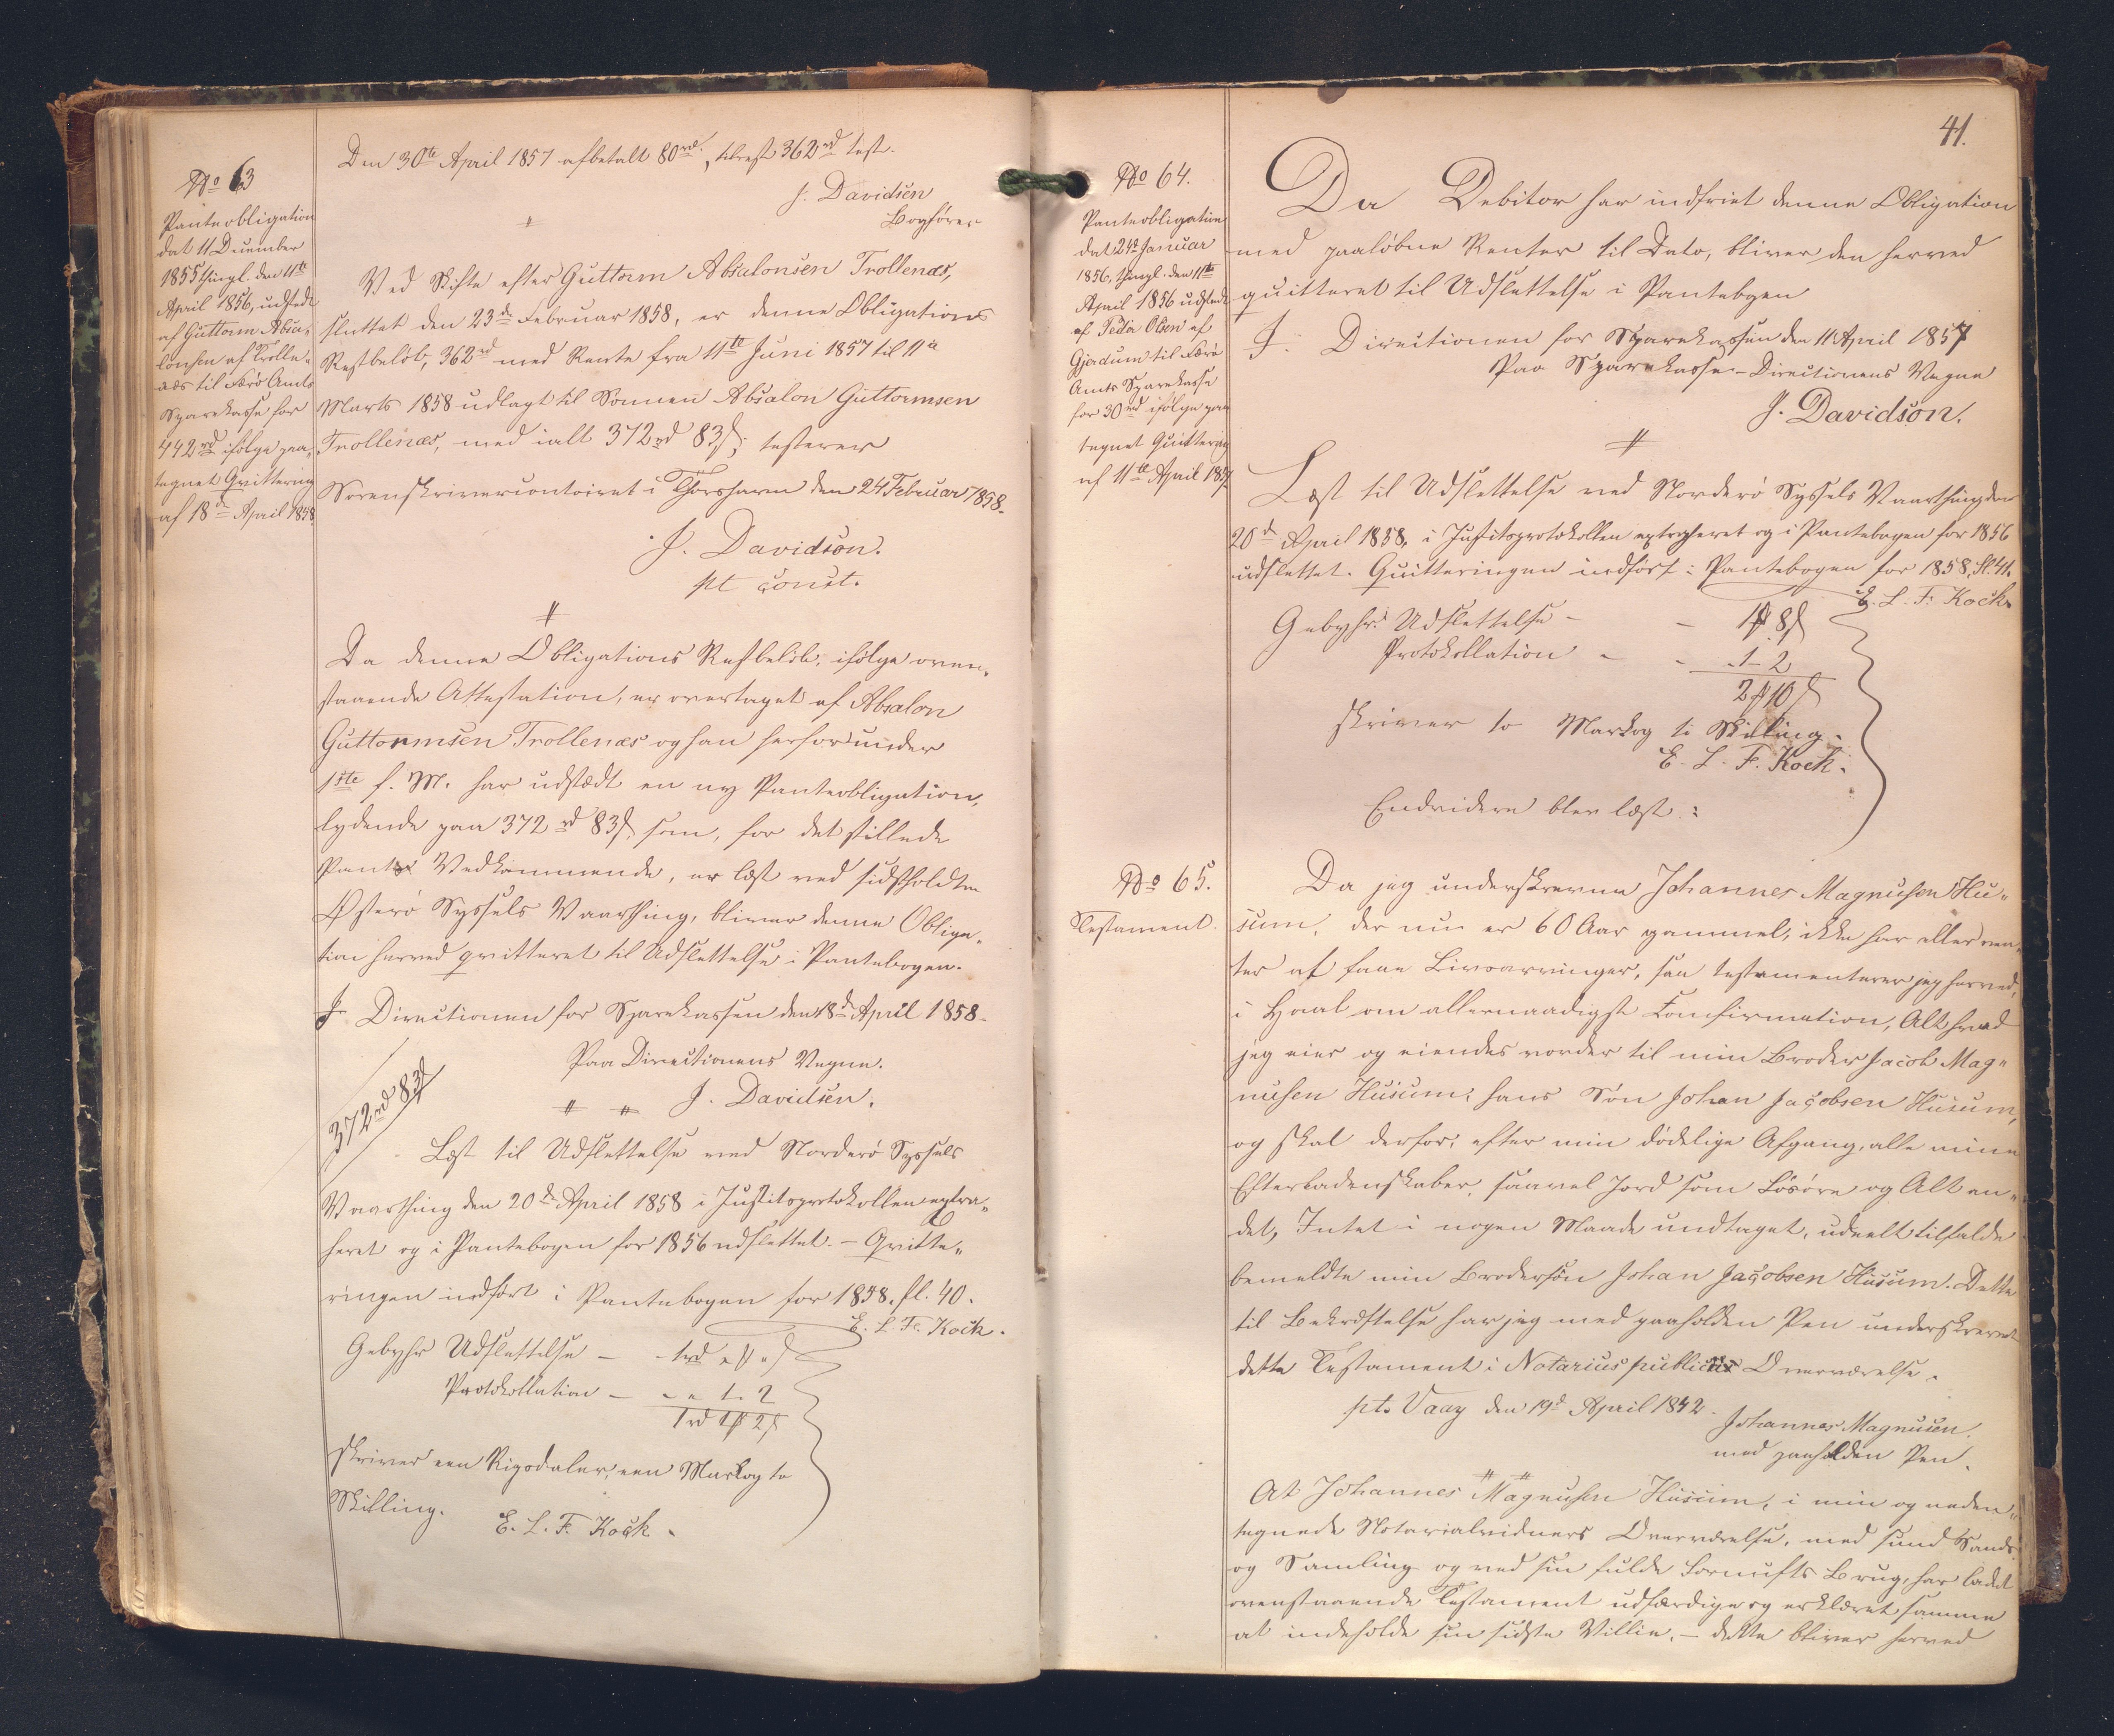 No 63
Panteobligation
dat 11 December
1855 thingl. den 11te
April 1856, udstedt
af Guttorm Absa-
lonsen af Trolle-
næs til Færø Amts
Sparekasse for
442rd ifølge paa-
tegnet Qvittering
af 18de April 1858
Den 30te April 1857 afbetalt 80rd., tilrest 362rd test.
J. Davidsen
Bogfører
"
Ved Skifte efter Guttorm Absalonsen Trollenæs,
sluttet den 23de Februar 1858, er denne Obligations
Restbeløb, 362rd med Rente fra 11te Juni 1857 til 11te
Marts 1858 udlagt til Sønnen Absalon Guttormsen
Trollenæs, med ialt 372rd 83s; testerer
Sorenskrivercontoiret i Thorshavn den 24 Februar 1858.
J. Davidson.
pt const.
"
Da denne Obligations Restbeløb, ifølge oven-
staaende Attestation, er overtaget af Absalon
Guttormsen Trollenæs og han herfor under
1ste f. M. har udstædt en ny Panteobligation,
lydende paa 372rd 83s, som, for det stillede
Pants Vedkommende, er læst ved sidstholdte
Østerø Syssels Vaarthing, bliver denne Obliga-
tion herved qvitteret til Udslettelse i Pantebogen.
I Directionen for Sparekassen den 18de April 1858.
Paa Directionens Vegne.
J. Davidsen.
" "
372rd 83s
Læst til Udslettelse ved Norderø Syssels
Vaarthing den 20de April 1858 i Justitsprotokollen extra-
heret og i Pantebogen for 1856 udslettet. - Qvitte-
ringen indført i Pantebogen for 1858, fl. 40.
E. L. F. Kock.
Gebyhr Udslettelse - 1rd " "
Protokollation - " " 1 - 2
1rd 1# 2s
skriver een Rigsdaler, een Mark og to
Skilling.
E. L. F. Kock.
41.
No 64.
Panteobligation
dat 24de Januar
1856, thingl. den 11te
April 1856 udstedt
af Peder Olsen af
Gjerdum til Færø
Amts Sparekasse
for 30rd ifølge paa
tegnet Quittering
af 11te April 1857
Da Debitor har indfriet denne Obligation
med paaløbne Renter til Dato, bliver den herved
quitteret til Udslettelse i Pantebogen
I Directionen for Sparekassen den 11 April 1857
Paa Sparekasse-Directionens Vegne
J. Davidson.
"
Læst til Udslettelse ved Norderø Syssels Vaarthing den
20de April 1858, i Justitsprotokollen extraheret og i Pantebogen for 1856
udslettet. Quitteringen indført i Pantebogen for 1858, fl. 41.
E. L. F. Kock.
Gebyhr Udslettelse - - 1# 8s
Protokollation - - " 1 - 2
2# 10s
skriver to Mark og ti Skilling.
E. L. F. Kock.
Endvidere blev læst:
No 65.
Testament.
Da jeg underskrevne Johannes Magnusen Hu-
sum, der nu er 60 Aar gammel, ikke har eller ven-
ter at faae Livsarvinger, saa testamenterer jeg herved,
i Haab om allernaadigst Confirmation, Alt hvad
jeg eier og eiendes vorder til min Broder Jacob Mag-
nusen Husum, hans Søn Johan Jacobsen Husum,
og skal derfor, efter min dødelige Afgang, alle mine
Efterladenskaber, saavel Jord som Løsøre og Alt an-
det, Intet i nogen Maade undtaget, udeelt tilfalde
bemeldte min Brodersøn Johan Jacobsen Husum. Dette
til Bekræftelse har jeg med paaholden Pen underskrevet
dette Testament i Notarius publicus Overværelse.
pt. Vaag den 19d April 1842.
Johannes Magnusen.
med paaholden Pen.
" "
At Johannes Magnusen Husum, i min og neden-
tegnede Notarialvidners Overværelse, med sund Sands
og Samling og ved sin fulde Fornufts Brug, har ladet
ovenstaaende Testament udfærdige og erklæret samme
at indeholde sin sidste Villie, - dette bliver herved